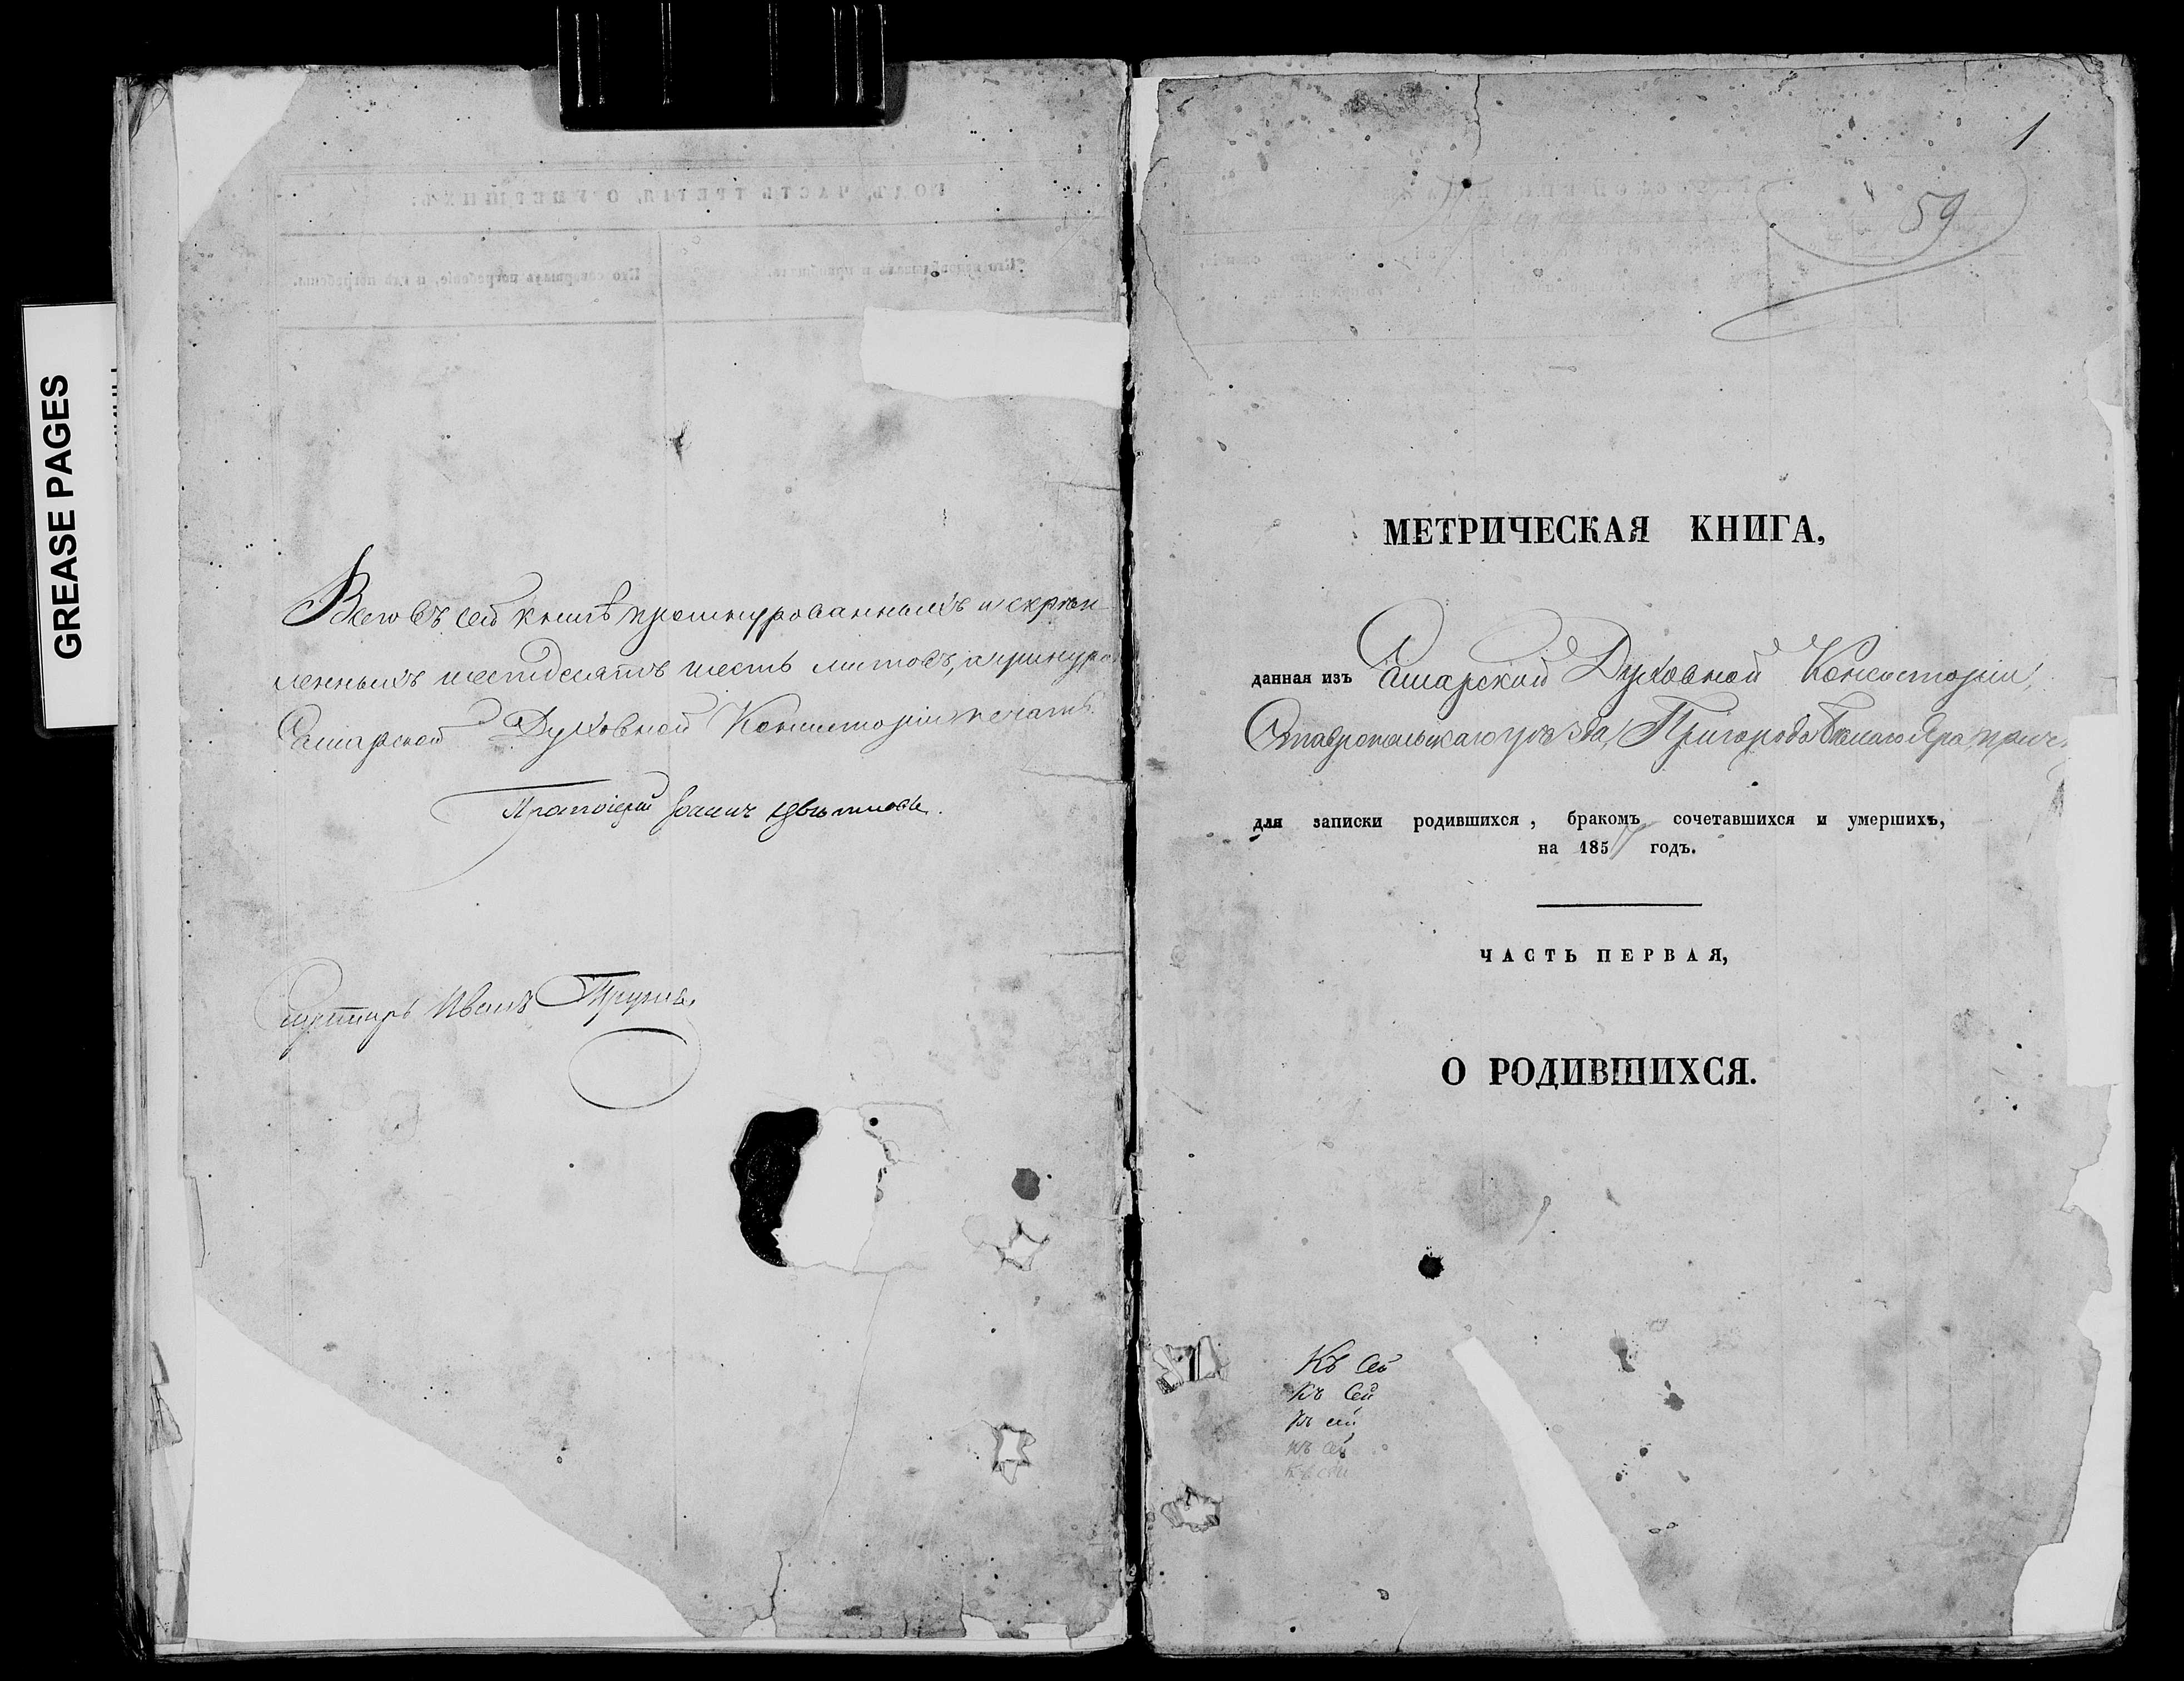 GREASE PAGES
Всего въ сей книгѣ прошнурованныхъ и скрѣп
ленныхъ шестьдесятъ шесть листовъ, а при шнурѣ
Самарской Духовной Консисторіи печать.
Протоіерей Іоаннъ Цвѣтковъ.
Иванъ
1
59
МЕТРИЧЕСКАЯ КНИГА,
данная изъ Самарской Духовной Консисторіи,
Ставропольскаго уѣзда, Пригорода Бѣлаго Яра, прич
для записки родившихся, бракомъ сочетавшихся и умершихъ,
на 1857 годъ.
ЧАСТЬ ПЕРВАЯ,
О РОДИВШИХСЯ.
Къ Сей
Къ Сей
Къ сей
Къ сей
Къ сей